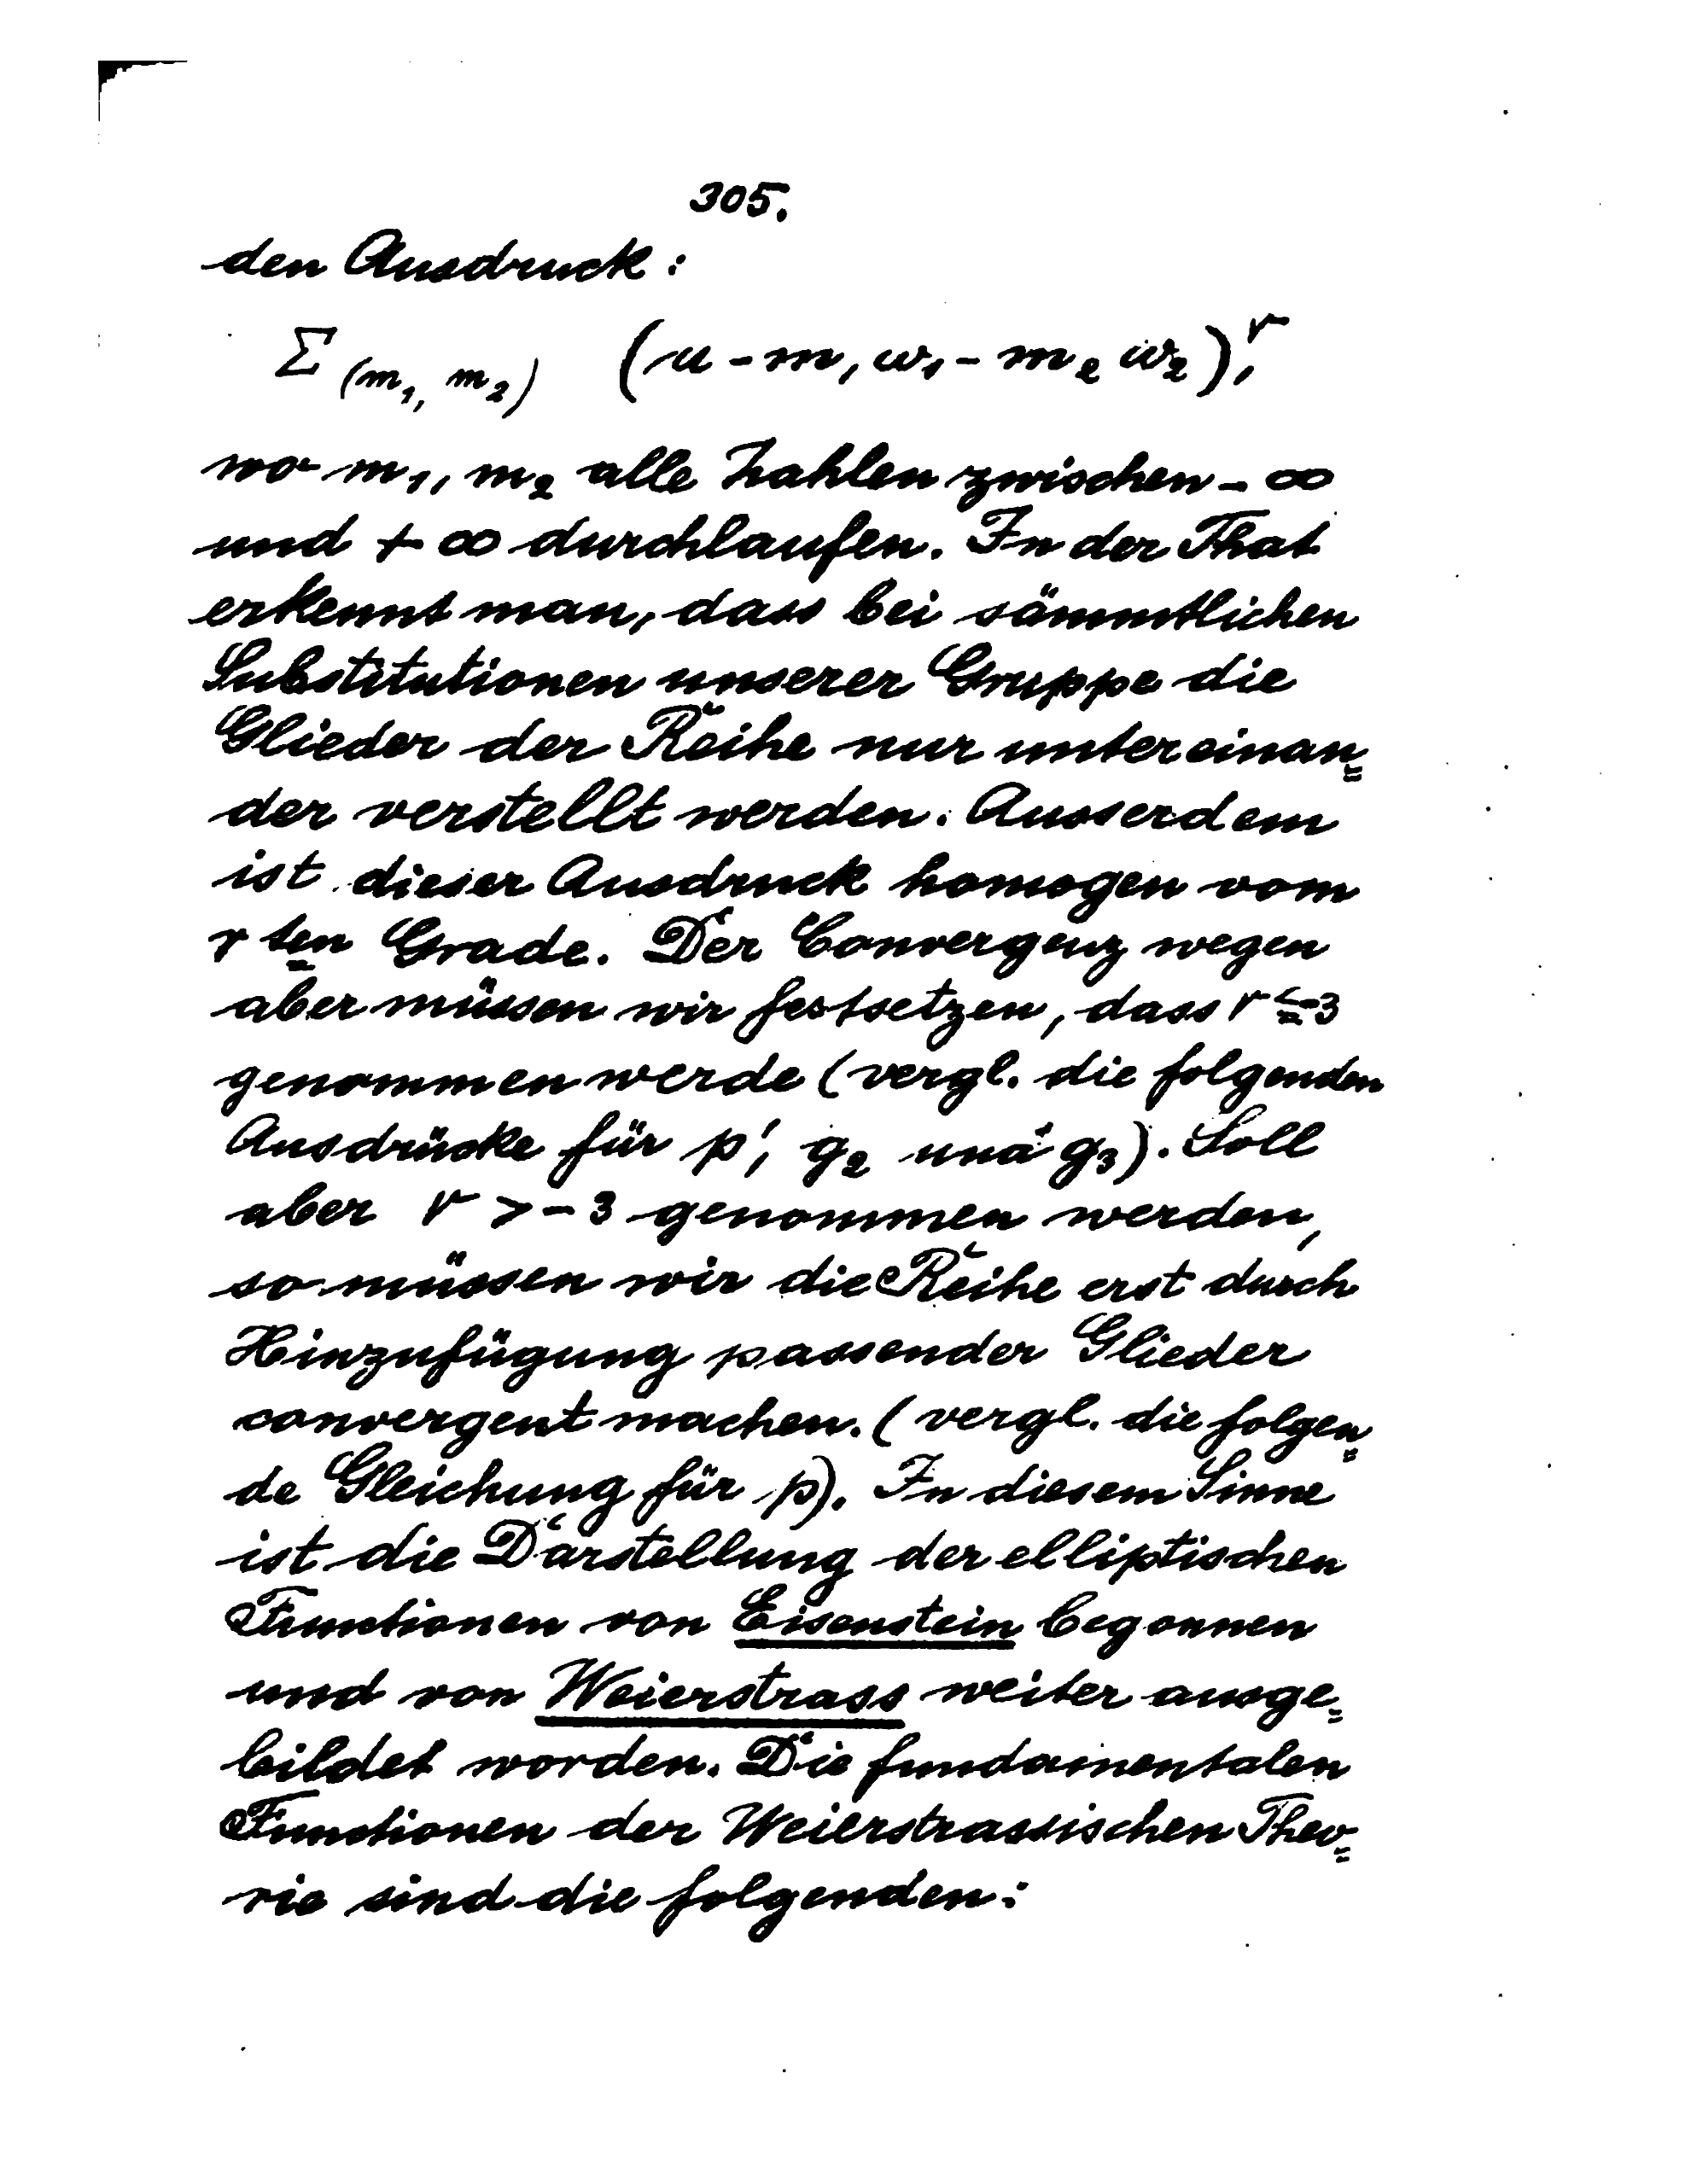 305.
den Ausdruck:
Σ (m₁, m₂) (u - m₁ω₁ - m₂ ω₂)ʳ,
wo m₁, m₂ alle Zahlen zwischen - ∞
und + ∞ durchlaufen. In der That
erkennt man, dass bei sämmtlichen
Substitutionen unserer Gruppe die
Glieder der Reihe nur untereinan=
der verstellt werden. Ausserdem
ist dieser Ausdruck homogen vom
r ten Grade. Der Convergenz wegen
aber müssen wir festsetzen, dass r ≤ -3
genommen werde (vergl. die folgenden
Ausdrücke für p', g₂ und g₃). Soll
aber r > - 3 genommen werden,
so müssen wir die Reihe erst durch
Hinzufügung passender Glieder
convergent machen. (vergl. die folgen=
de Gleichung für p). In diesem Sinne
ist die Darstellung der elliptischen
Functionen von Eisenstein begonnen
und von Weierstrass weiter ausge=
bildet worden. Die fundamentalen
Functionen der Weierstrassischen Theo=
rie sind die folgenden: